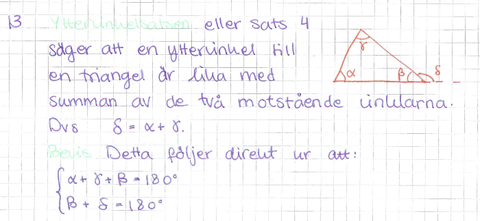 13 Yttervinkelsatsen eller sats 4
säger att en yttervinkel till
en triangel är lika med
summan av de två motstående vinklarna.
Dvs δ = α + γ.
Bevis Detta följer direkt ur att:
α + γ + β = 180°
β + δ = 180°
γ
α β δ